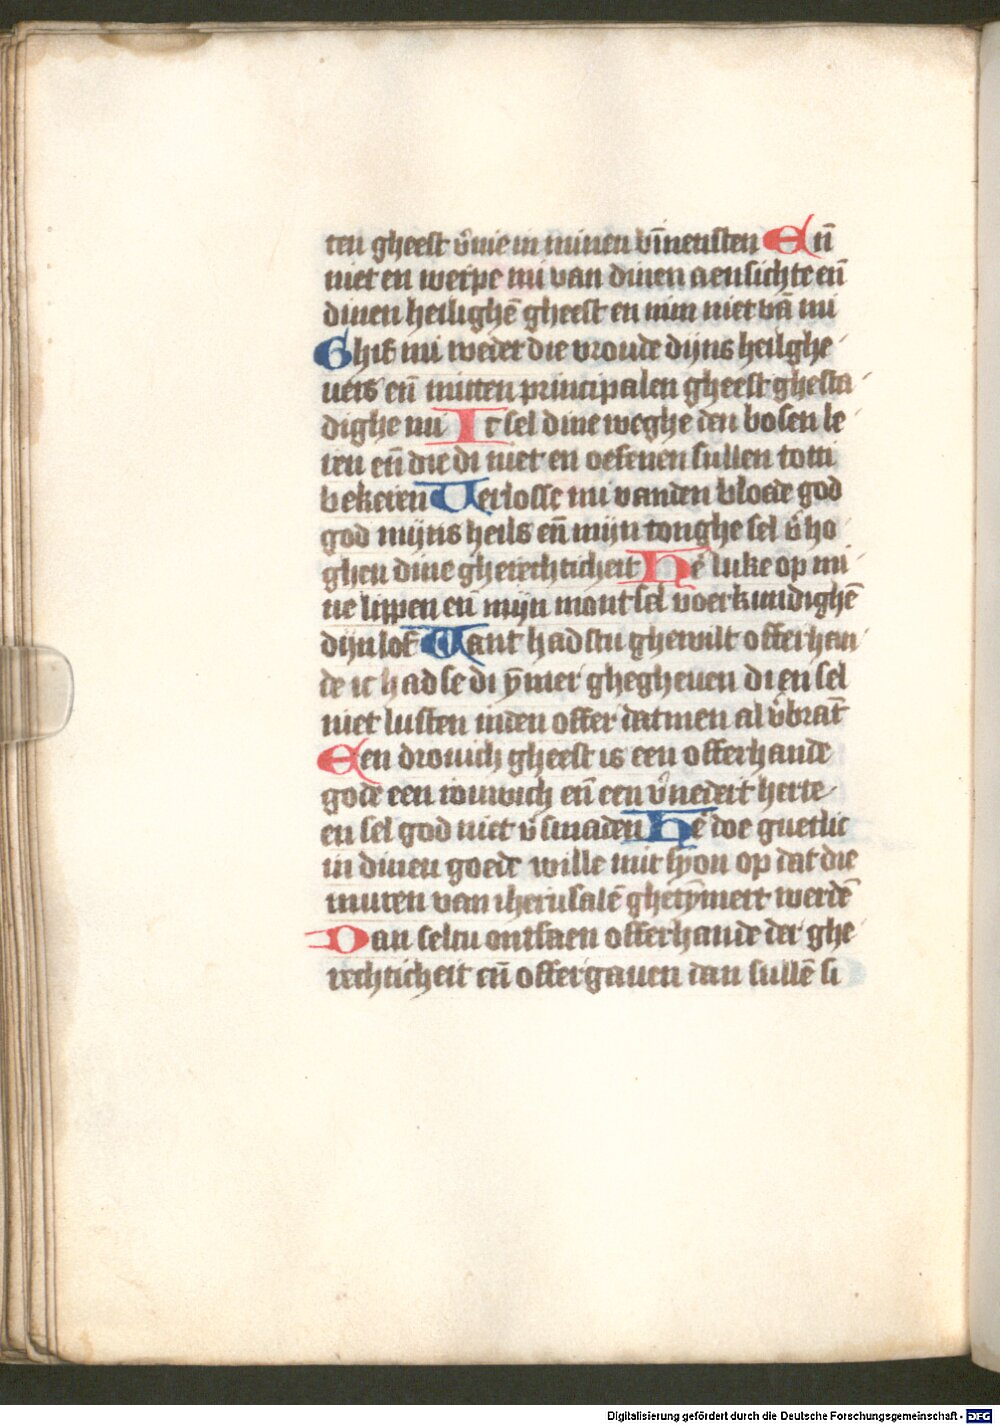 ten gheest v̾nie in minen bīnensten En̄
niet en werpe mi van dinen aensichte en̄
dinen heilighē gheest en nim niet vā mi
Ghif mi weder die vroude dijns heilghe
uers en̄ mitten principalen gheest ghesta
dighe mi Ic sel dine weghe den bosen le
ren en̄ die di niet en oefenen sullen totti
bekeren Verlosse mi vanden bloede god
god mijns heils en̄ mijn tonghe sel v̾ho
ghen dine gherechticheit Hē luke op mi
ne lippen en̄ mijn mont sel voerkundighē
dijn lof Want hadstu ghewilt offerhan
de ic hadse di ȳmer ghegheuen di en sel
niet lusten inden offer datmen al v̾brāt
Een drouich gheest is een offerhande
gode een rouwich en̄ een v̾nedert herte
en sel god niet v̾smaden Hē doe guetlic
in dinen goede wille mit syon op dat die
muren van iherusalē ghetȳmert werdē
Dan seltu ontfaen offerhande der ghe
rechticheit en̄ offergauen dan sullē si
Digitalisierung gefördert durch die Deutsche Forschungsgemeinschaft - DFG